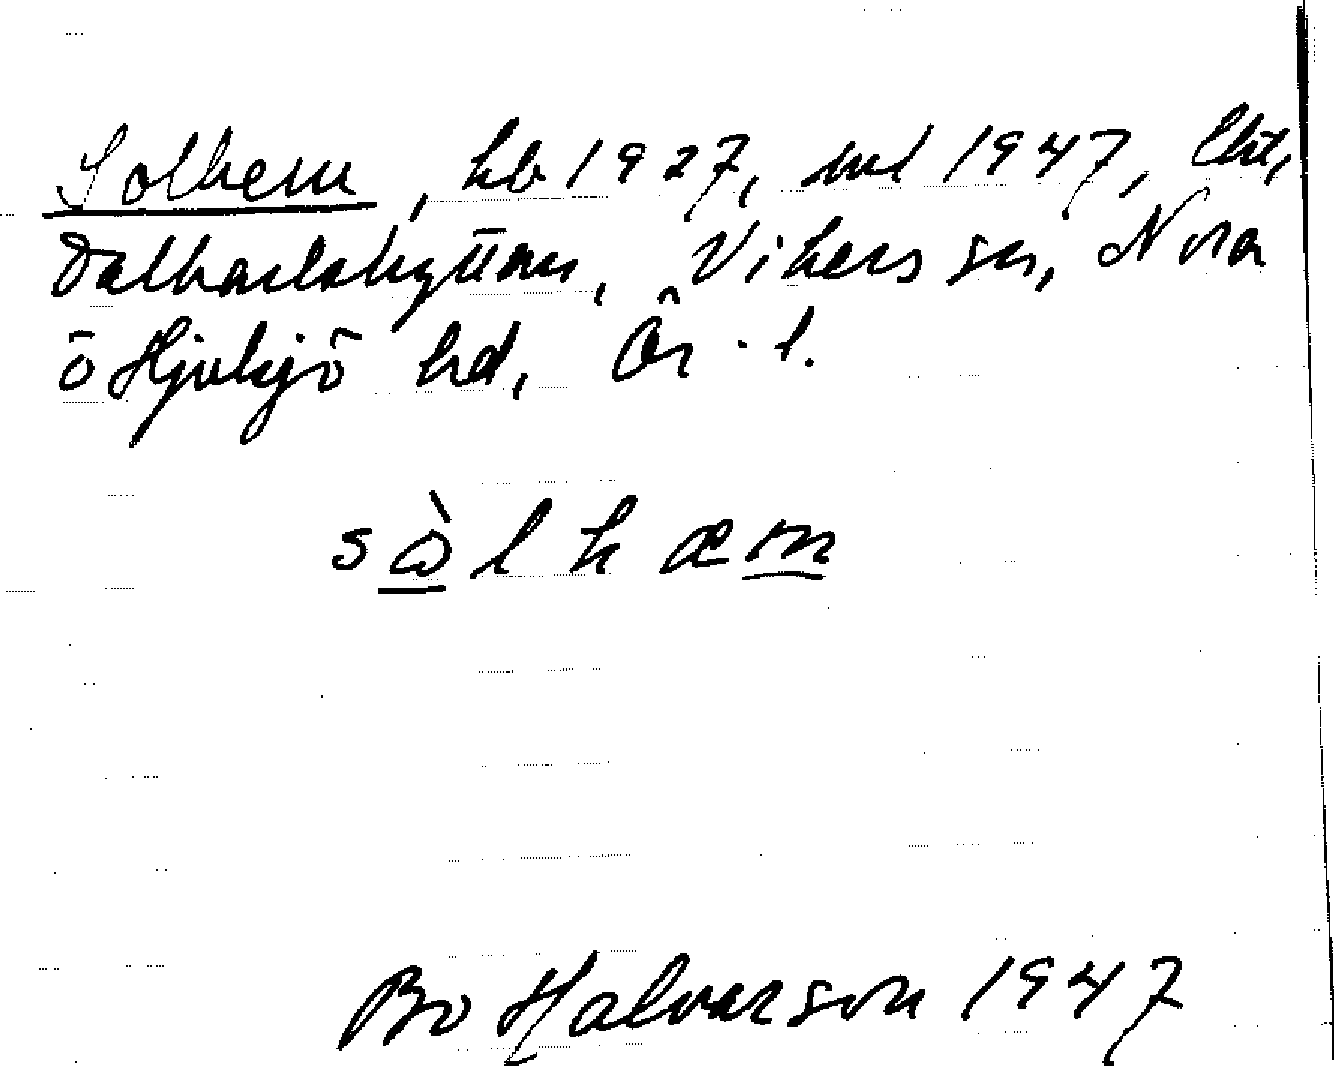 Solhem, hb 1927, ml 1947, lht,
Dalkarlshyttan, Vikers sn, Nora
o Hjulsjö hd, Ör. l.
sὼlhæm
Bo Halvarson 1947